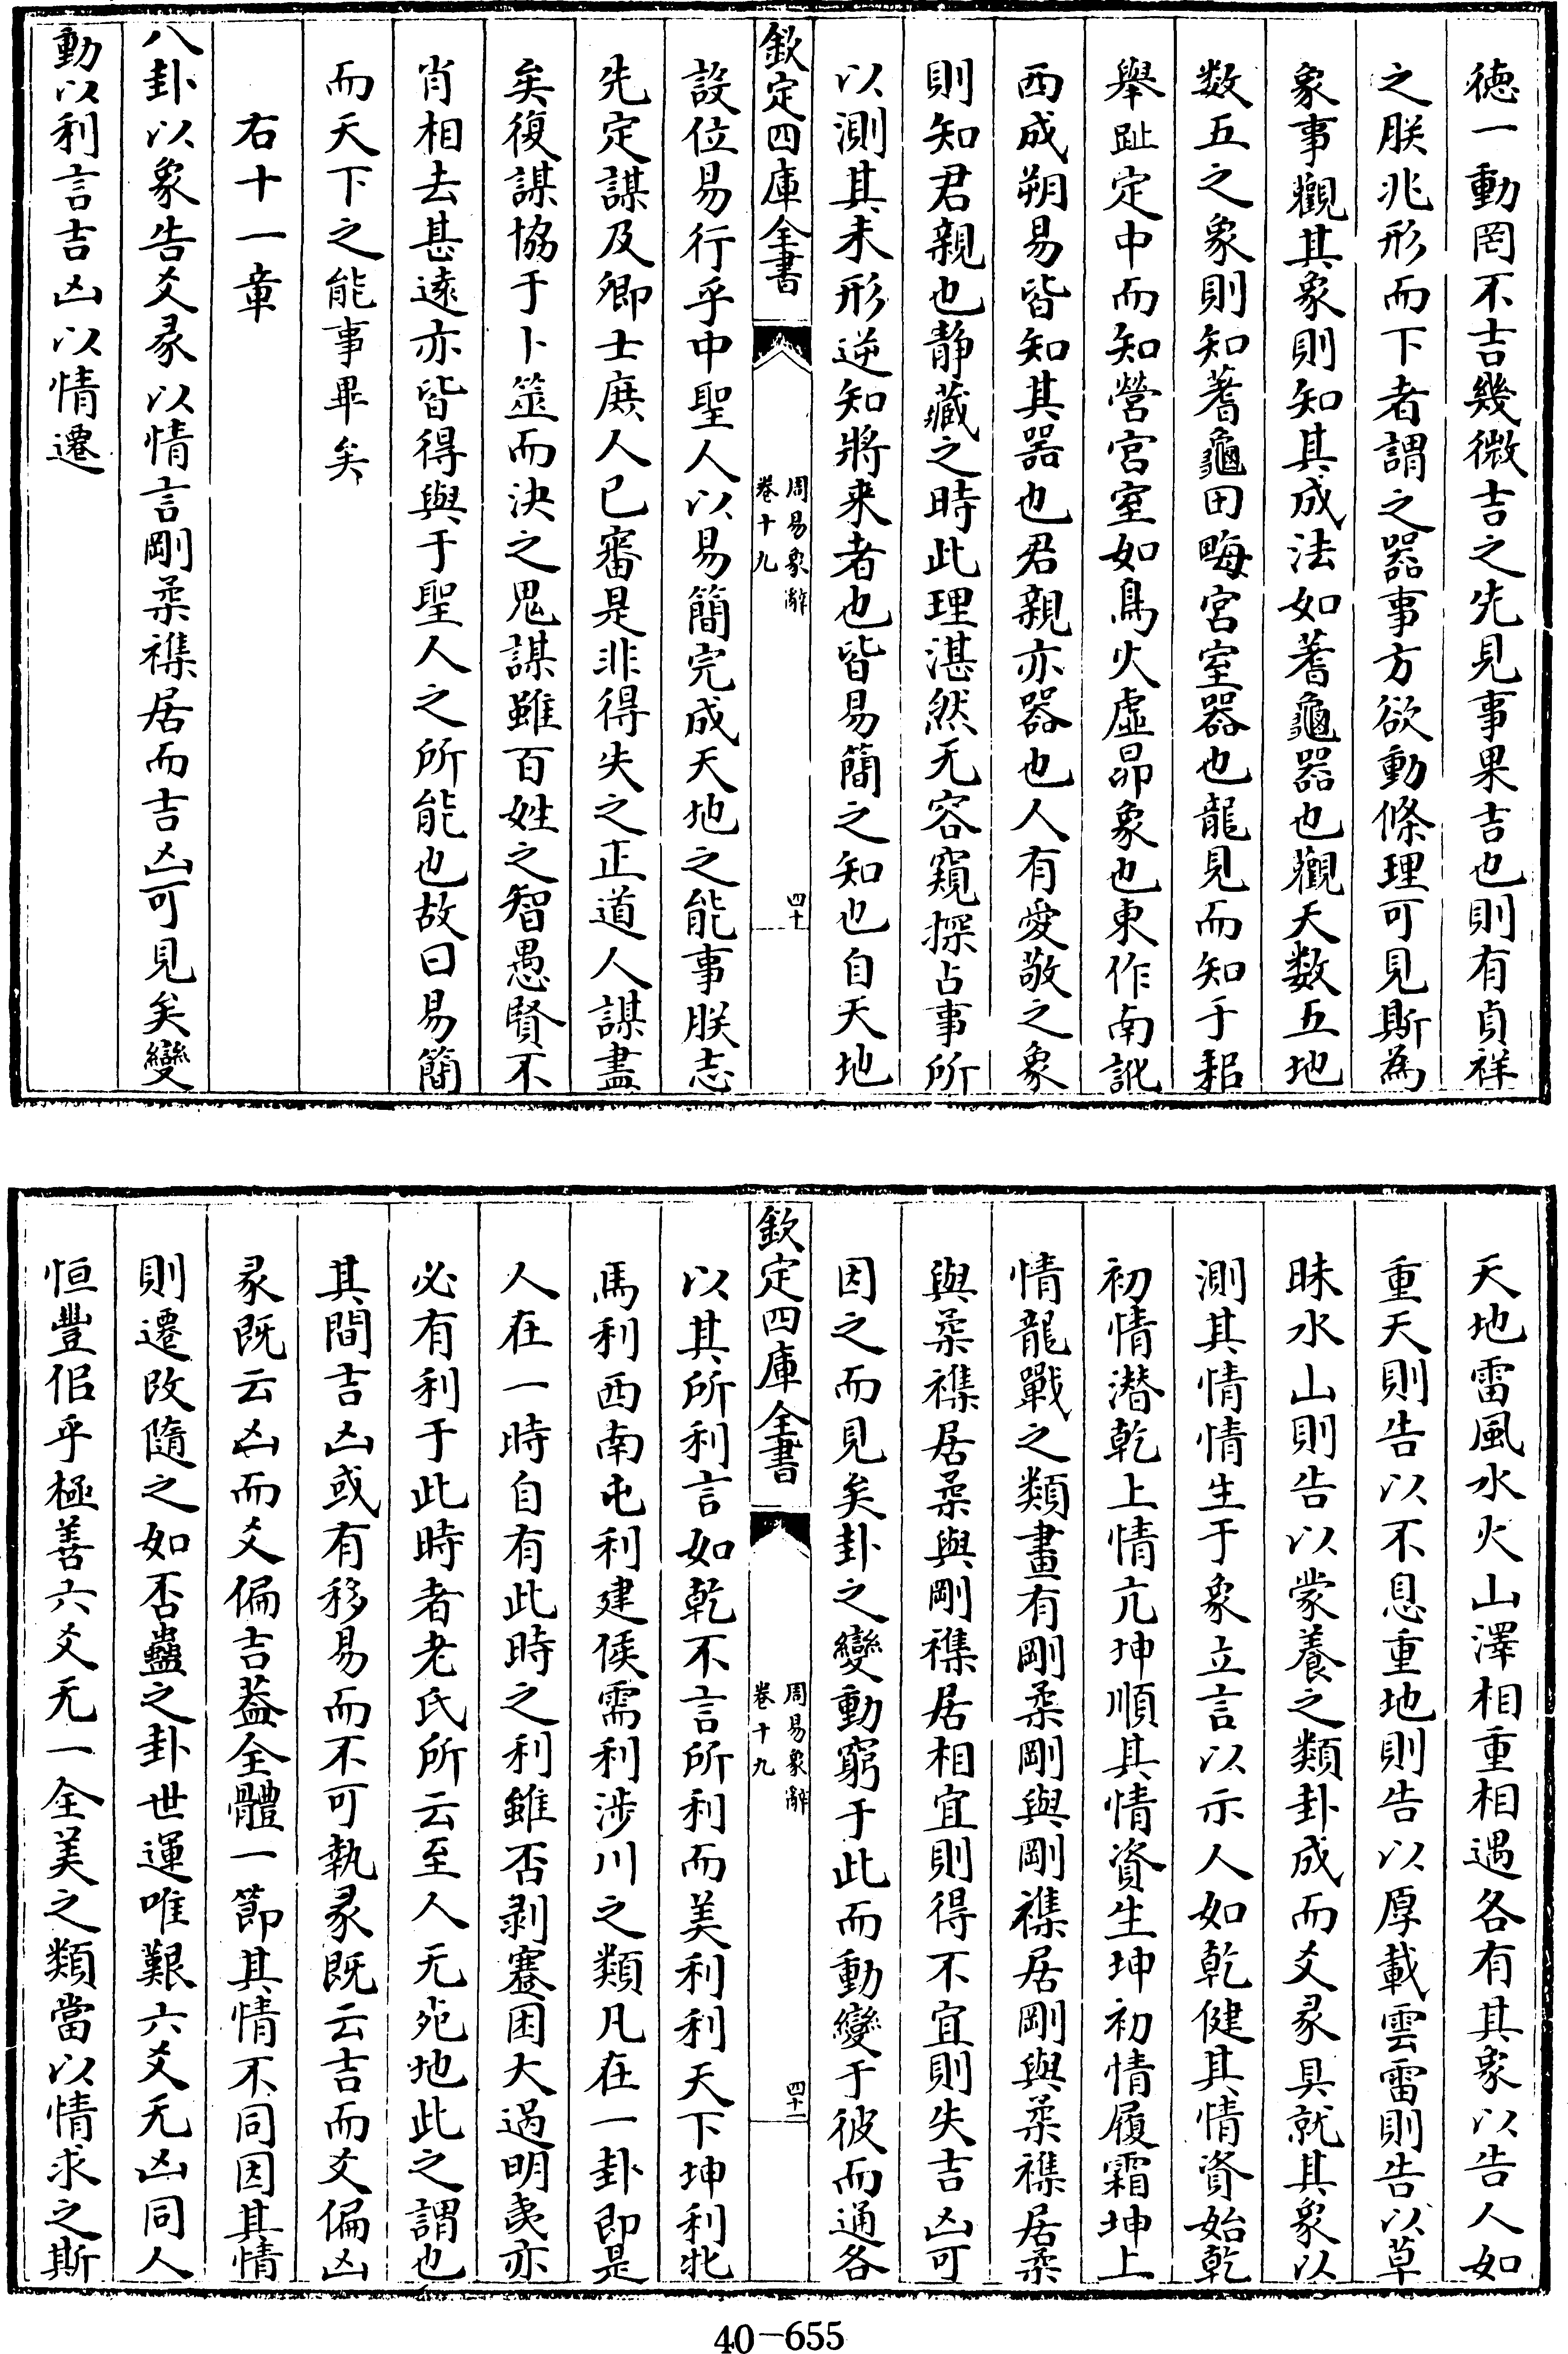 德一動罔不吉幾微吉之先見事果吉也則有貞祥
之朕兆形而下者謂之器事方欲動條理可見斯為
象事觀其象則知其成法如蓍龜器也觀天數五地
数五之象則知蓍龜田畮宮室器也龍見而知于耜
舉趾定中而知營宮室如鳥火虛昴象也東作南訛
西成朔易皆知其器也君親亦器也人有愛敬之象
則知君親也静藏之時此理湛然无容窺探占事所
以測其未形逆知將来者也皆易簡之知也自天地
欽定四庫全書
周易象辭
卷十九
四十
設位易行乎中聖人以易簡完成天地之能事朕志
先定謀及卿士庶人已審是非得失之正道人謀盡
矣復謀協于卜筮而決之鬼謀雖百姓之智愚賢不
肖相去甚逺亦皆得與于聖人之所能也故曰易簡
而天下之能事畢矣
右十一章
八卦以象告爻彖以情言剛柔襍居而吉凶可見矣變
動以利言吉凶以情遷
天地雷風水火山澤相重相遇各有其象以告人如
重天則告以不息重地則告以厚載雲雷則告以草
昧水山則告以蒙養之類卦成而爻彖具就其象以
測其情情生于象立言以示人如乾健其情資始乾
初情潛乾上情亢坤順其情資生坤初情履霜坤上
情龍戰之類畫有剛柔剛與剛襍居剛與柔襍居柔
與柔襍居柔與剛襍居相宜則得不宜則失吉凶可
因之而見矣卦之變動窮于此而動變于彼而通各
欽定四庫全書
周易象辭
卷十九
四十一
以其所利言如乾不言所利而美利利天下坤利牝
馬利西南屯利建侯需利涉川之類凡在一卦即是
人在一時自有此時之利雖否剥蹇困大過明夷亦
必有利于此時者老氏所云至人无死地此之謂也
其間吉凶或有移易而不可執彖既云吉而爻偏凶
彖既云凶而爻偏吉葢全體一節其情不同因其情
則遷改隨之如否蠱之卦世運唯艱六爻无凶同人
恒豐佀乎極善六爻无一全美之類當以情求之斯
40-655